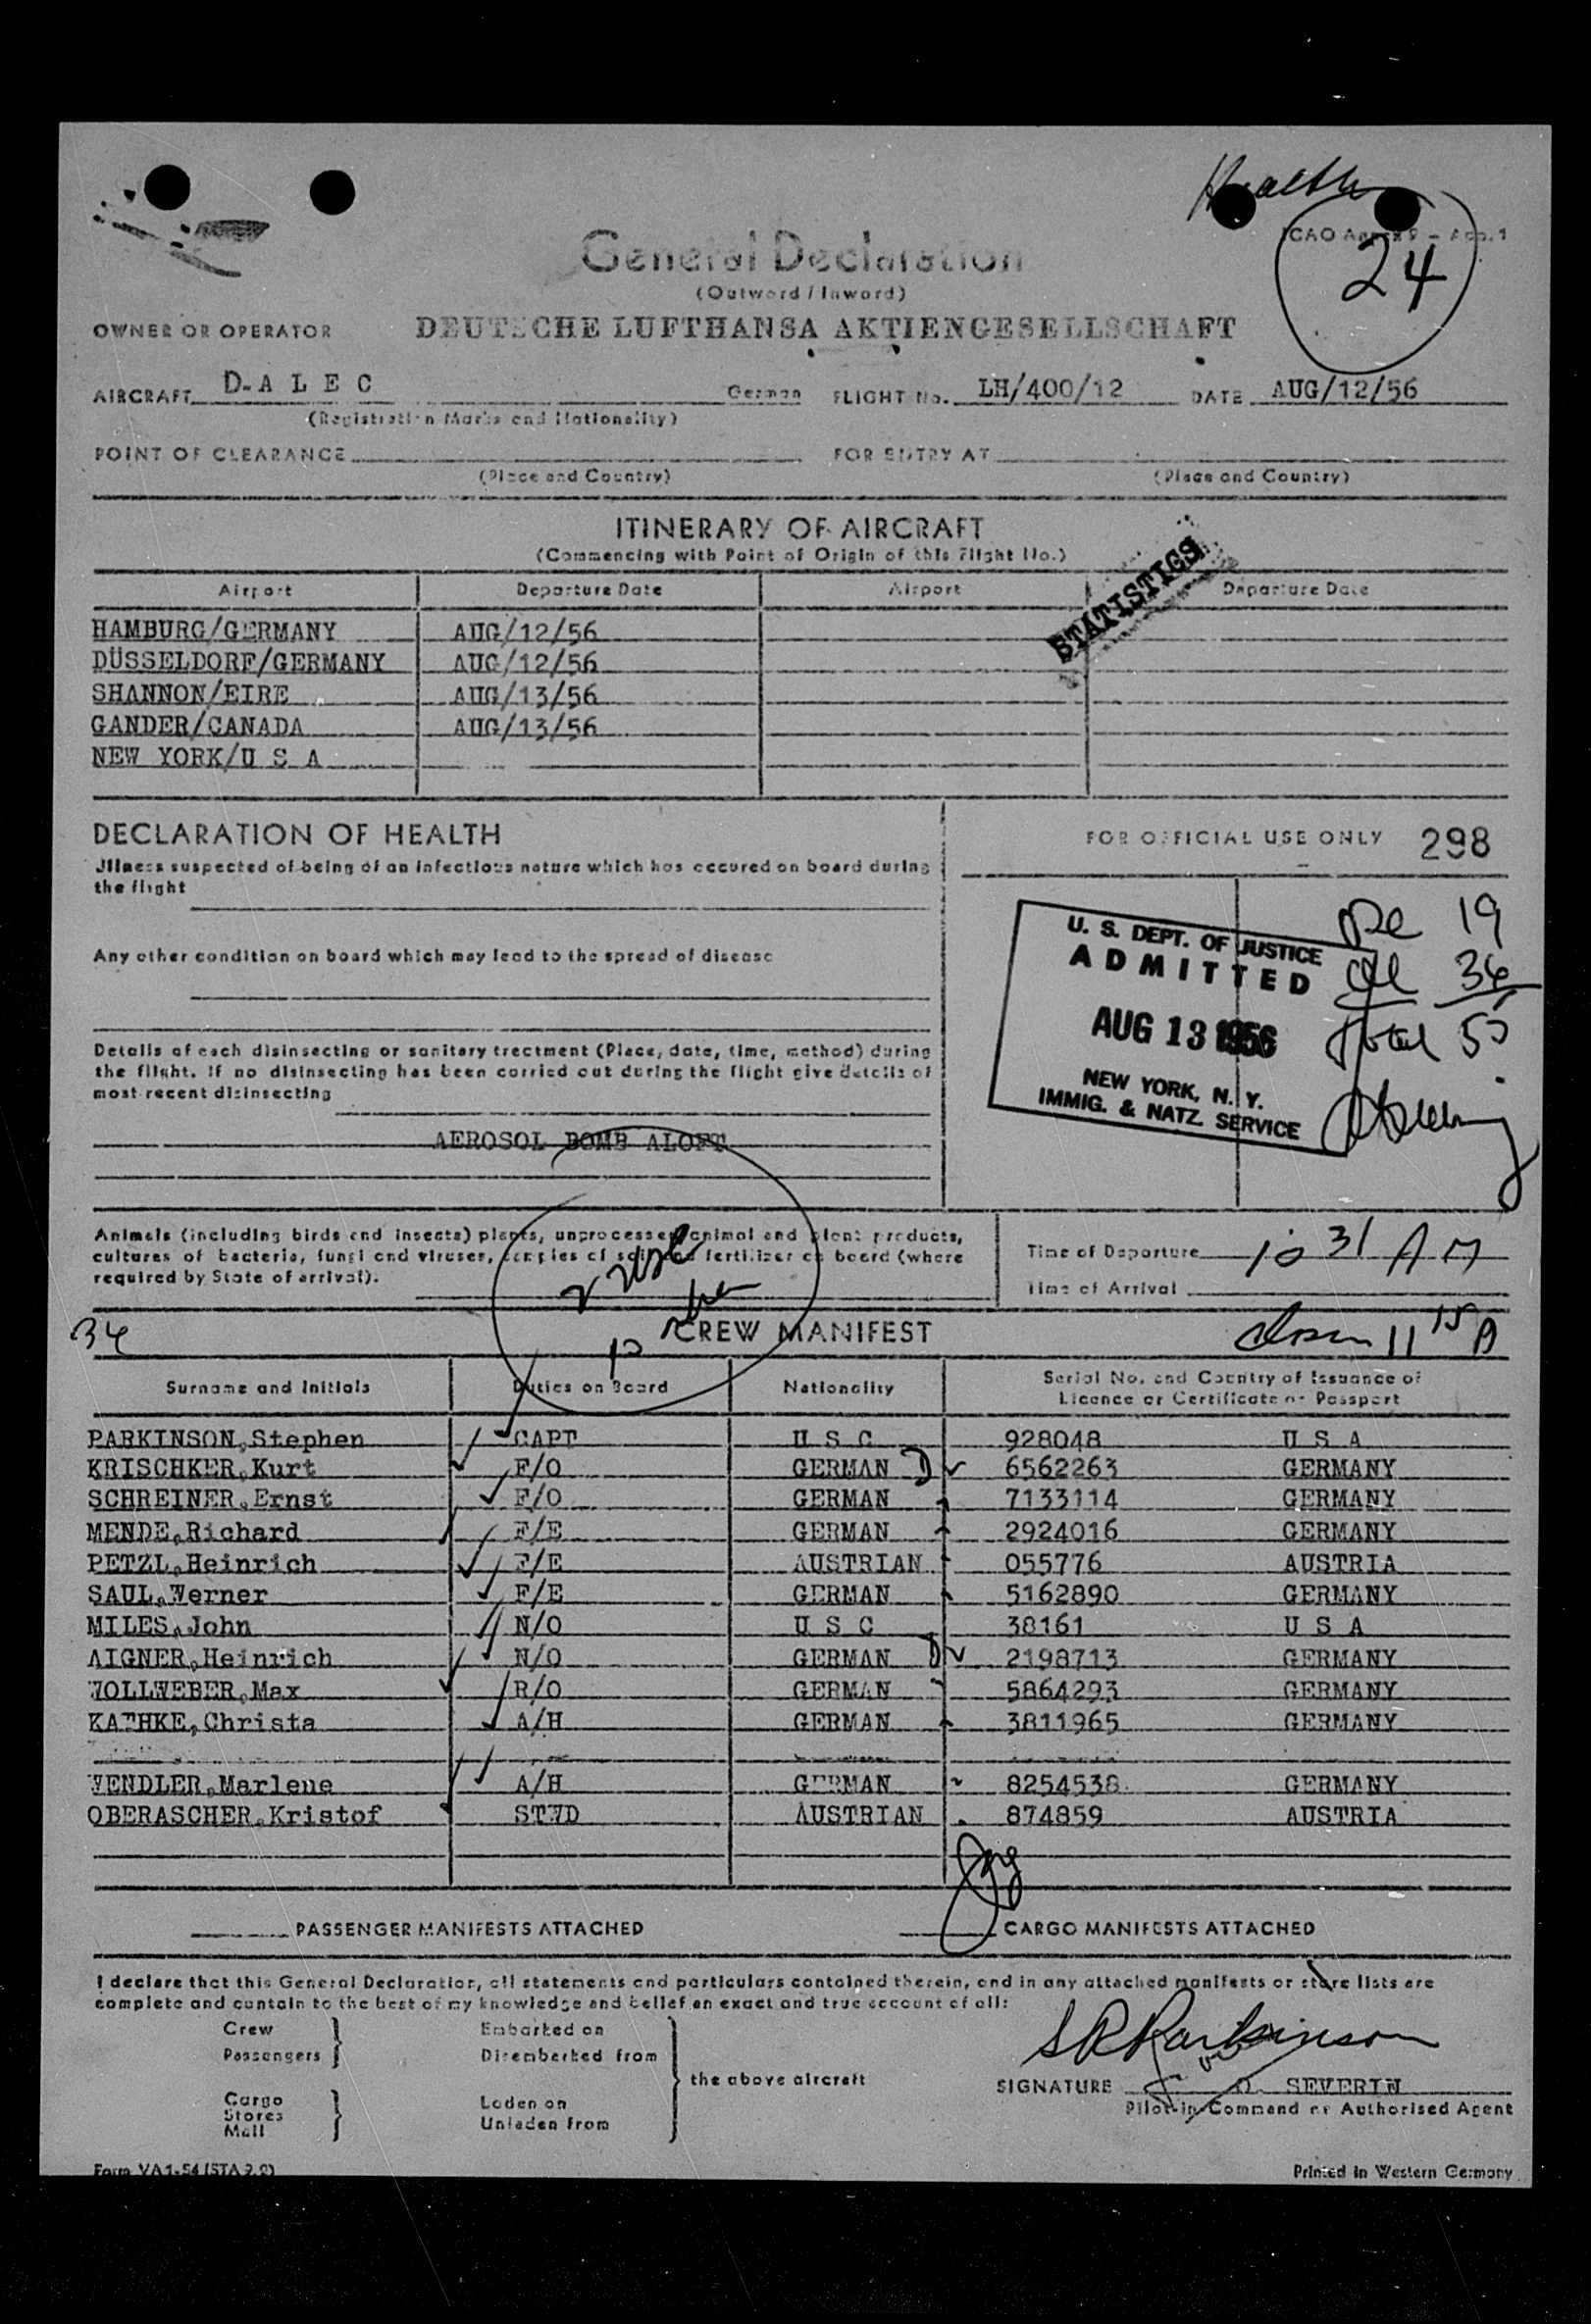 Health
ICAO Annex 9 – App. 1
24
General Declaration
(Outward / Inward)
OWNER OR OPERATOR DEUTSCHE LUFTHANSA AKTIENGESELLSCHAFT
AIRCRAFT D-A L E C German FLIGHT No. LH/400/12 DATE AUG/12/56
(Registration Marks and Nationality)
POINT OF CLEARANCE FOR ENTRY AT
(Place and Country) (Place and Country)
ITINERARY OF AIRCRAFT
(Commencing with Point of Origin of this Flight No.)
STATISTICS
Airport Departure Date Airport Departure Date
HAMBURG/GERMANY AUG/12/56
DÜSSELDORF/GERMANY AUG/12/56
SHANNON/EIRE AUG/13/56
GANDER/CANADA AUG/13/56
NEW YORK/U S A
DECLARATION OF HEALTH
Jllness suspected of being of an infectious nature which has occured on board during
the flight
Any other condition on board which may lead to the spread of disease
Details of each disinsecting or sanitary treatment (Place, date, time, method) during
the flight. If no disinsecting has been carried out during the flight give details of
most recent disinsecting
AEROSOL BOMB ALOFT
FOR OFFICIAL USE ONLY 298
U. S. DEPT. OF JUSTICE
ADMITTED
AUG 13 1956
NEW YORK, N. Y.
IMMIG. & NATZ. SERVICE
19
36
Total 55
Animals (including birds and insects) plants, unprocessed animal and plant products,
cultures of bacteria, fungi and viruses, samples of soil and fertilizer on board (where
required by State of arrival).
Time of Departure 10 31 A M
Time of Arrival
34
CREW MANIFEST
11 15 A
Surname and Initials Duties on Board Nationality Serial No. and Country of Issuance of
Licence or Certificate or Passport
PARKINSON,Stephen CAPT U S C 928048 U S A
KRISCHKER,Kurt F/O GERMAN D 6562263 GERMANY
SCHREINER,Ernst F/O GERMAN 7133114 GERMANY
MENDE,Richard F/E GERMAN 2924016 GERMANY
PETZL,Heinrich F/E AUSTRIAN 055776 AUSTRIA
SAUL,Werner F/E GERMAN 5162890 GERMANY
MILES,John N/O U S C 38161 U S A
AIGNER,Heinrich N/O GERMAN D 2198713 GERMANY
WOLLWEBER,Max R/O GERMAN 5864293 GERMANY
KATHKE,Christa A/H GERMAN 3811965 GERMANY
WENDLER,Marlene A/H GERMAN 8254538 GERMANY
OBERASCHER,Kristof STWD AUSTRIAN 874859 AUSTRIA
PASSENGER MANIFESTS ATTACHED CARGO MANIFESTS ATTACHED
I declare that this General Declaration, all statements and particulars contained therein, and in any attached manifests or store lists are
complete and contain to the best of my knowledge and belief an exact and true account of all:
Crew Embarked on
Passengers Disembarked from
the above aircraft
Cargo Laden on
Stores
Mail Unladen from
S R Parkinson
SIGNATURE O. SEVERIN
Pilot-in-Command or Authorised Agent
Form VA 1-54 (STA 2.2)
Printed in Western Germany